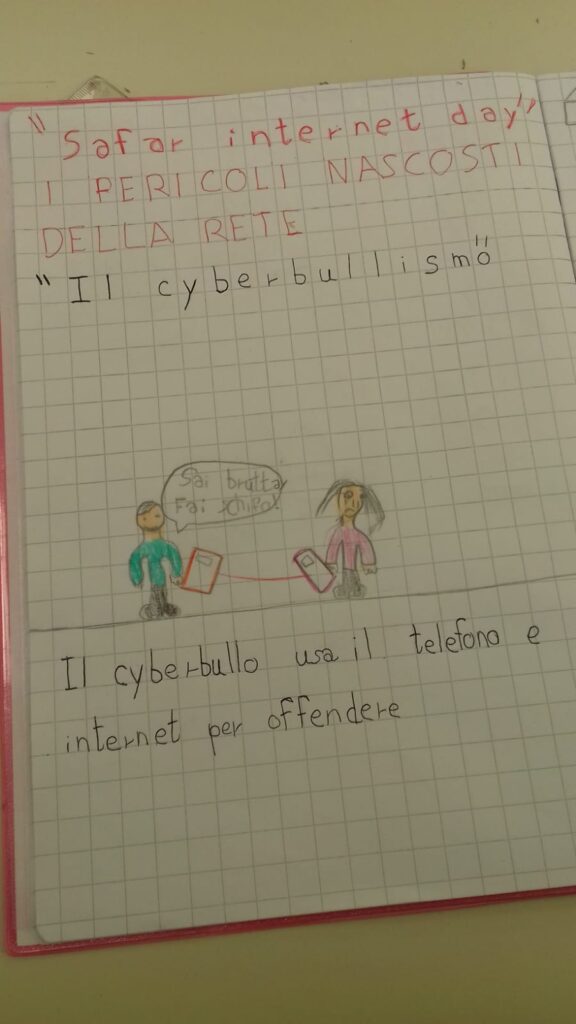 "Safar internet day"
I PERICOLI NASCOSTI
DELLA RETE
"Il cyberbullismo"
Sai brutta,
Fai schifo!
Il cyberbullo usa il telefono e
internet per offendere